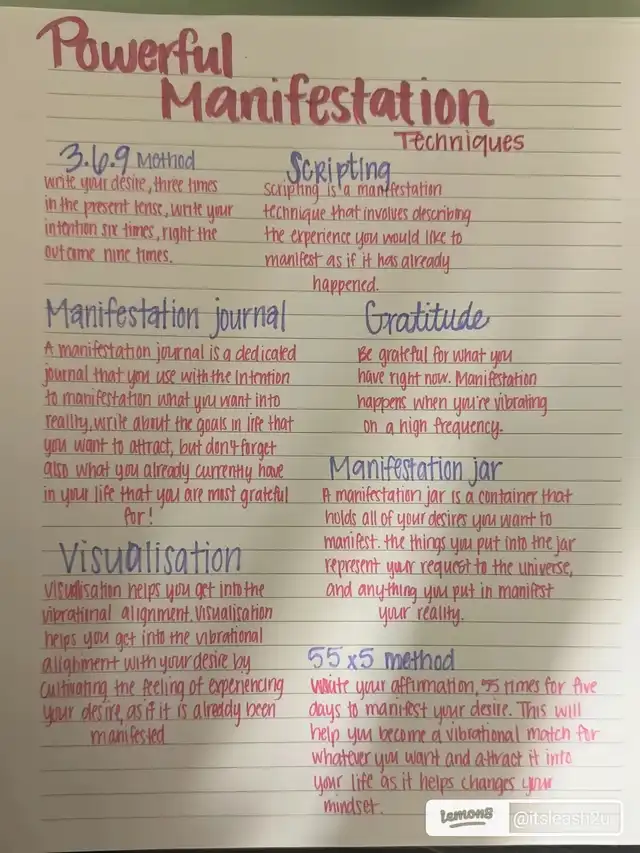 Powerful
Manifestation
Techniques
3.6.9 Method
write your desire, three times
in the present tense, write your
intention six times, right the
outcome nine times.
Scripting
scripting is a manifestation
technique that involves describing
the experience you would like to
manifest as if it has already
happened.
Manifestation journal
A manifestation journal is a dedicated
journal that you use with the intention
to manifestation what you want into
reality, write about the goals in life that
you want to attract, but don't forget
also what you already currently have
in your life that you are most grateful
for!
Gratitude
Be grateful for what you
have right now. Manifestation
happens when you're vibrating
on a high frequency.
Manifestation jar
A manifestation jar is a container that
holds all of your desires you want to
manifest. the things you put into the jar
represent your request to the universe,
and anything you put in manifest
your reality.
Visualisation
Visualisation helps you get into the
vibrational alignment. Visualisation
helps you get into the vibrational
alignment with your desire by
cultivating the feeling of experiencing
your desire, as if it is already been
manifested
55x5 method
write your affirmation, 55 times for five
days to manifest your desire. This will
help you become a vibrational match for
whatever you want and attract it into
your life as it helps changes your
mindset.
Lemon8 @itsleash2u